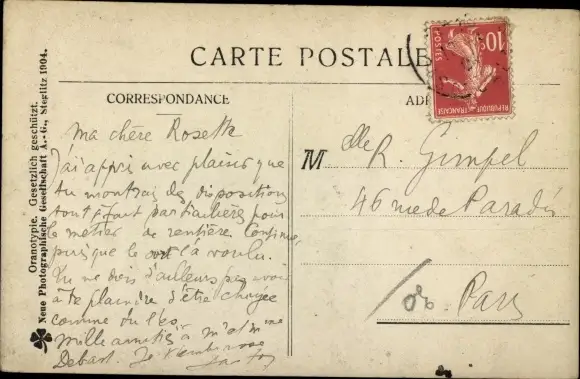 Oranotypie. Gesetzlich geschützt.
Neue Photographische Gesellschaft A.-G., Steglitz 1904.
CARTE POSTALE
10c
POSTES
REPUBLIQUE FRANÇAISE
CORRESPONDANCE
Ma chère Rosette
J'ai appris avec plaisir que
tu montrais des dispositions
tout à fait particulières pour
le métier de rentière. Continue,
puisque le sort l'a voulu.
Tu ne dois d'ailleurs pas avoir
à te plaindre d'être changée
comme tu l'es
mille amitiés à M. et Mme
Debast. Je t'embrasse
Mlle R. Gimpel
46 rue de Paradis
Paris